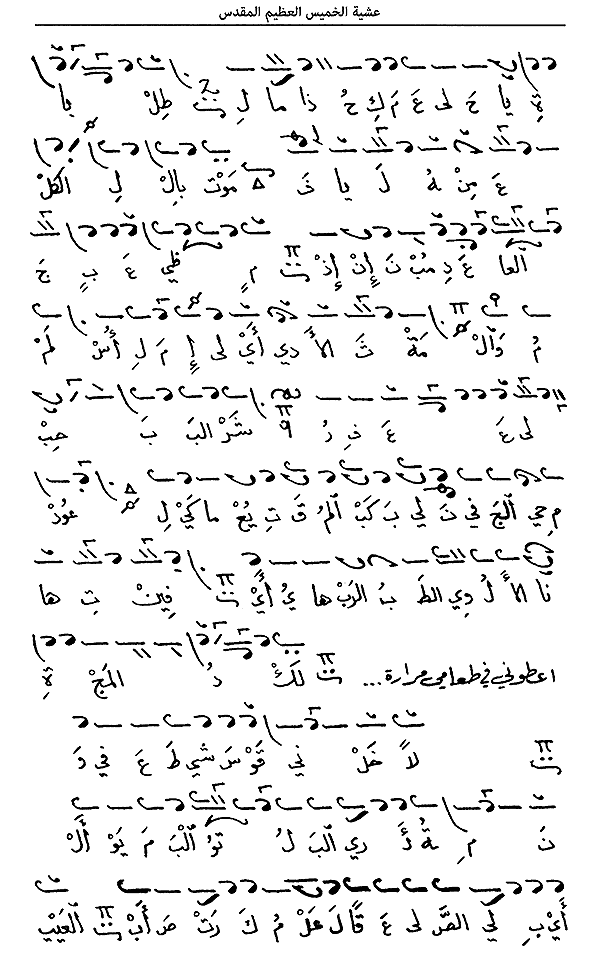 عشية الخميس العظيم المقدس
ةِ يا حَ لى عَ مَ كِ حُ ذا ما لِ طِلْ با
عَ مِنْ هُ لَ يا خَ مَوْتْ بِالْ لِ الكلْ
ٱلعا عَ دِ مُبْ نَ إِنْ إِذْ مٍ ظي عَ بٍ جَ
مُ وَٱلْ مَةْ ثَ الأَ دي أَيْ لى إِ مَ لِ أُسْ لَمْ
لى عَ عَ فِ رُ شَرْ البَ بَ حِبْ
مِ حي ٱلجَ في نَ لي بَ كَبْ ٱلمُ قَ تِ يُعْ ما كَيْ لِ عوُدْ
نا الأَ لُ دِي الطَ بُ الرَبْ ها يُ أَيْ فينْ تِ ها
اعطوني في طعامي مرارة... لَكْ دُ المَجْ ةِ
لاً خَلْ ني قَوْ سَ شي طَ عَ في وَ
نَ مِ ةُ دَ ري ٱلبَ لُ تو ٱلْبَ مَ يَوْ أَلْ
أَيْ بِ لي الصَّ لى عَ قاً لَ عَلْ مُ كَ رَتْ صَ أَبْ